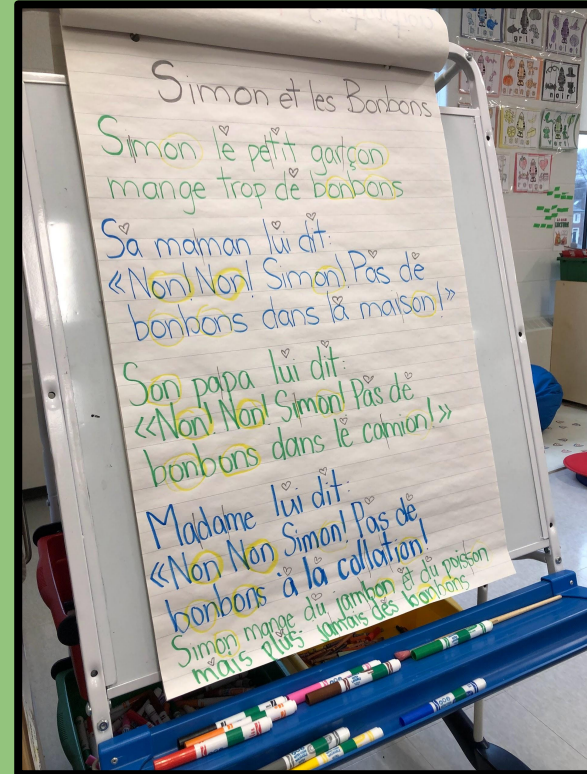 Simon et les Bonbons
Simon le petit garçon
mange trop de bonbons
Sa maman lui dit:
«Non! Non! Simon! Pas de
bonbons dans la maison!»
Son papa lui dit:
«Non! Non! Simon! Pas de
bonbons dans le camion!»
Madame lui dit:
«Non Non Simon! Pas de
bonbons à la collation!
Simon mange du jambon et du poisson
mais plus jamais des bonbons